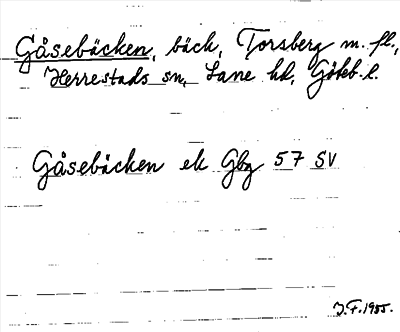 Gåsebäcken, bäck, Torsberg m. fl.,
Herrestads sn, Lane hd, Göteb. l.
Gåsebäcken ek Gbg 57 SV
J.F. 1955.